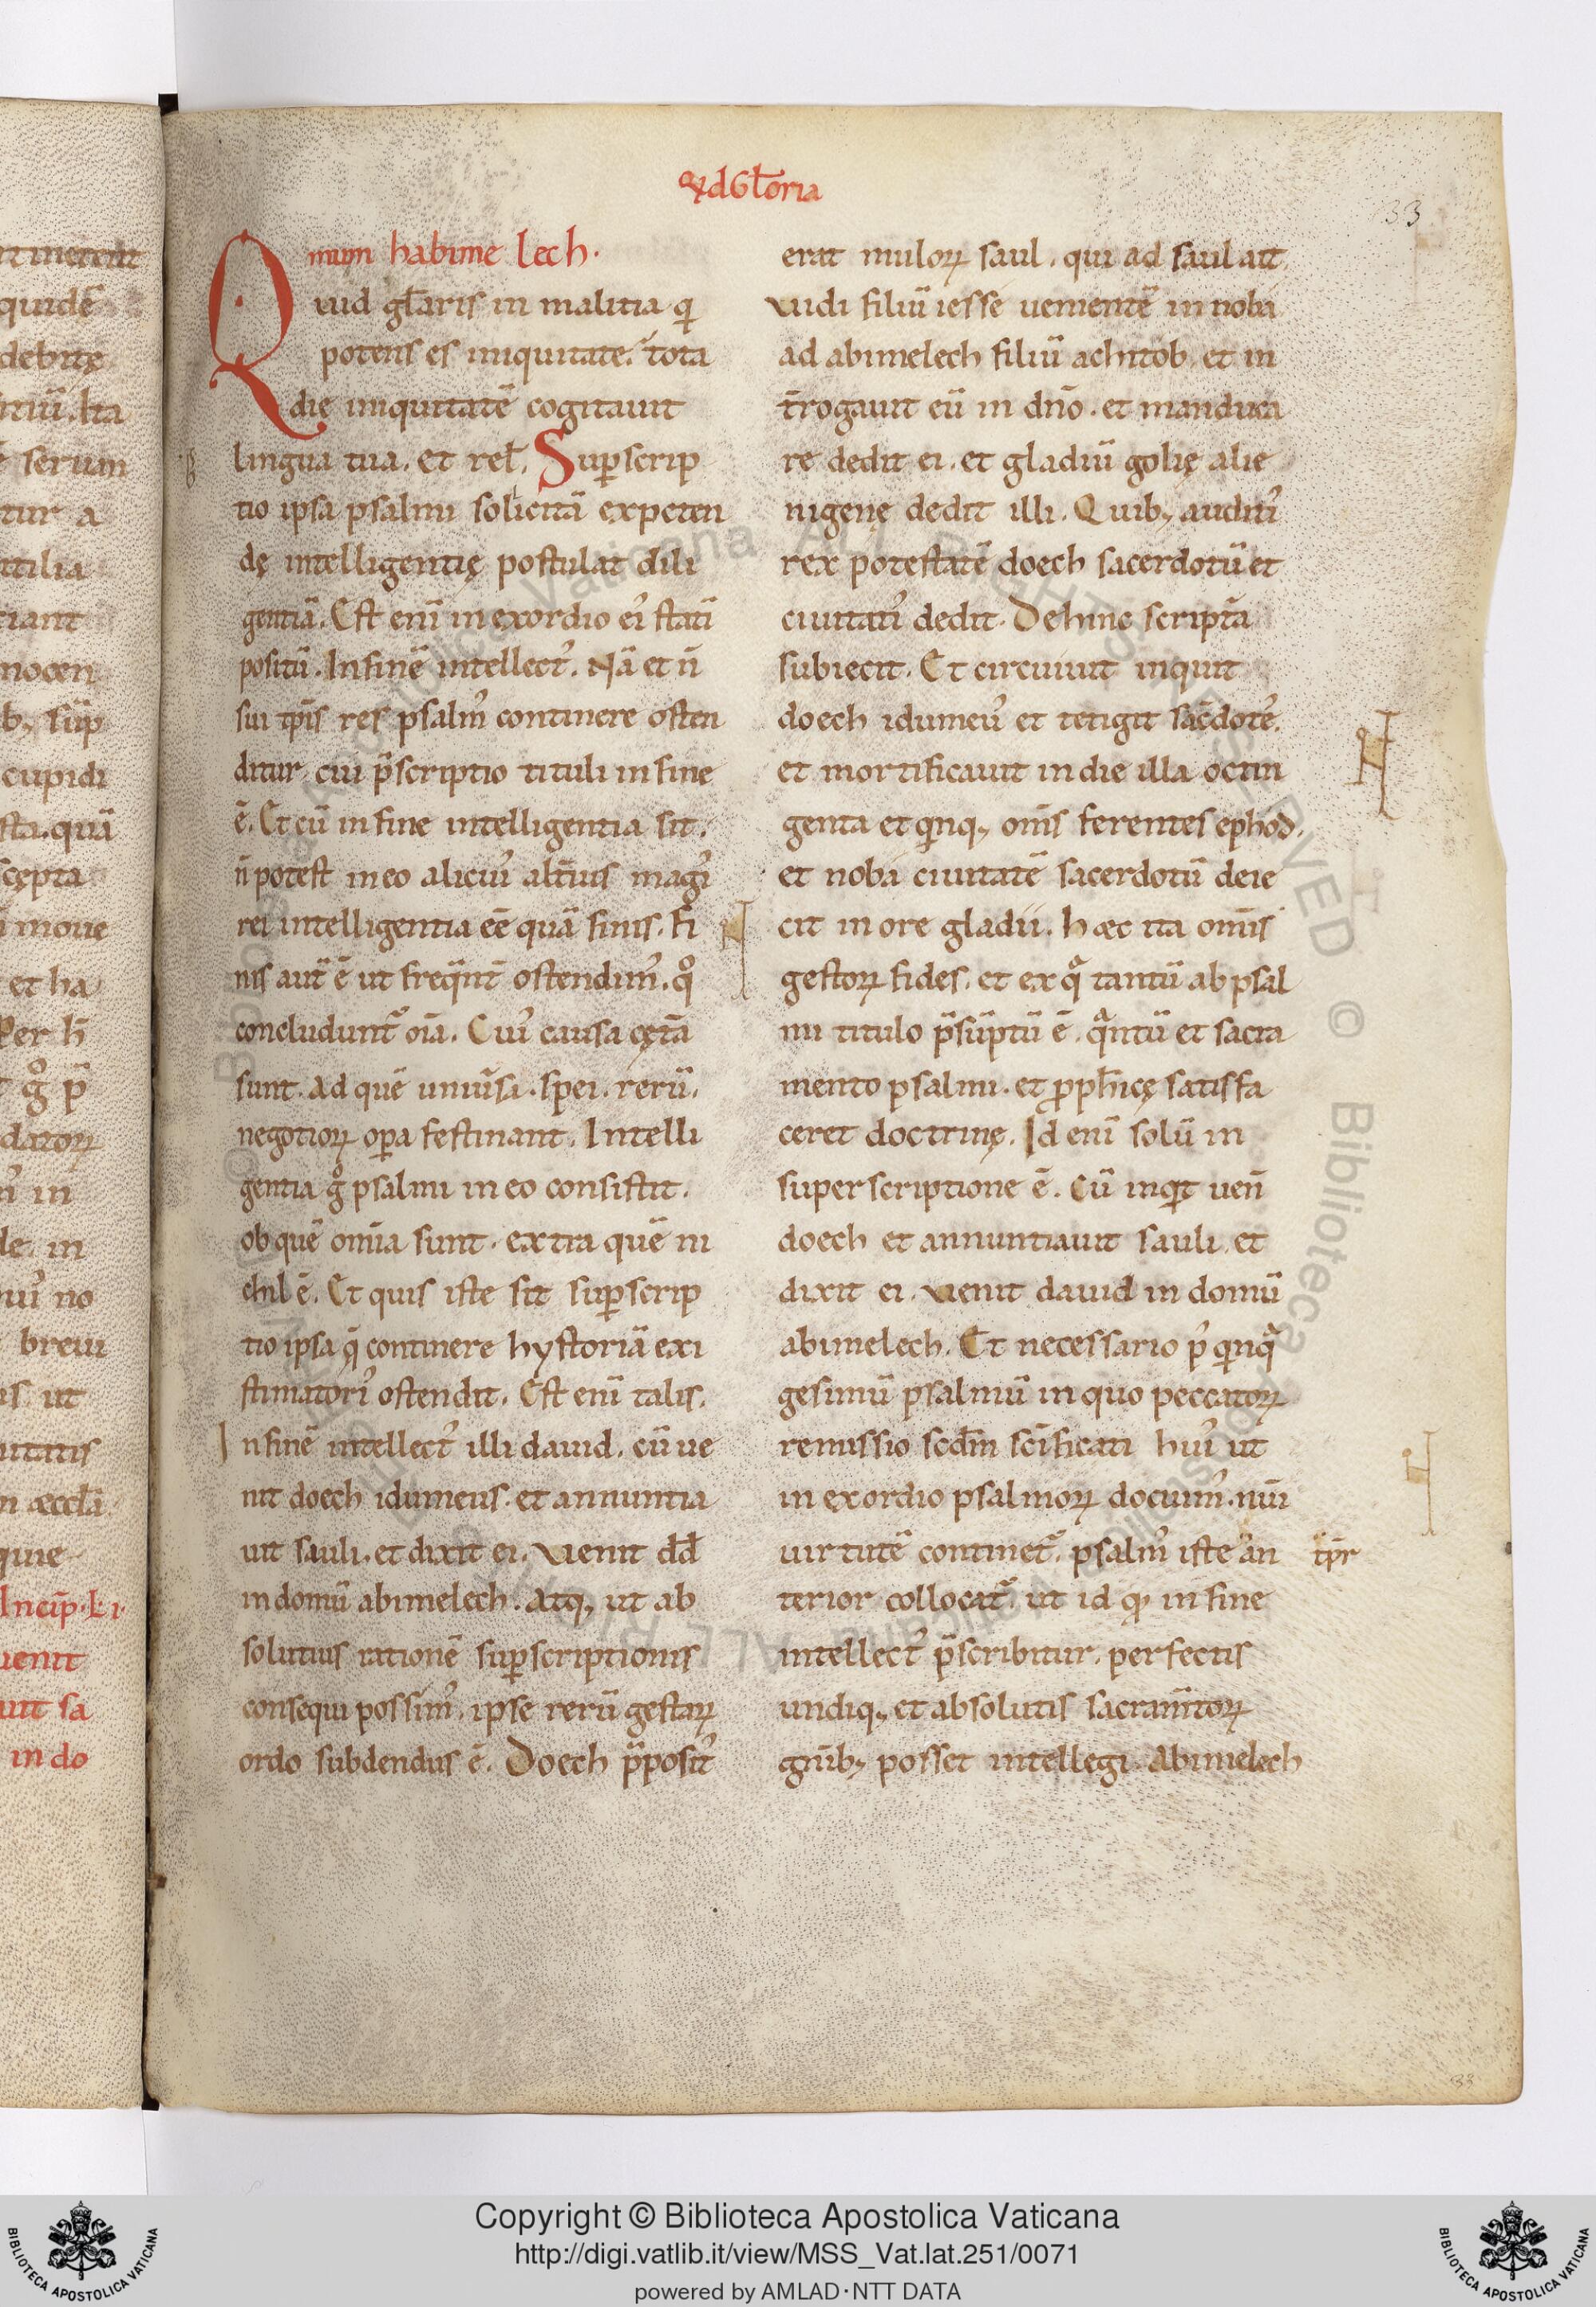 Qd Głoria
33
mum habime lech.
Quid gl̅aris in malitia q̇
potens es iniquitate. tota
die iniquitatē cogitauit
lingua tua. et rel̅. Sup̱scrip
tio ipsa psalmi solicitā expeten
dę intelligentię postulat dili
gentiā. Est eni̅ in exordio ei᾽ stati̅
positū. In finē intellect᾽. Nā et n̅
sui tp̅is res psalm᾽ continere osten
ditur. cui p̅scriptio tituli in fine
ē. Et cū in fine intelligentia sit.
n̅ potest in eo alicui᾽ alt̅ius magi᾽
rei intelligentia eē quā finis. fi
nis aut̅ ē ut freq̅nt̅ ostendim᾽. qͦ
concludunt᾽ oīa. Cui᾽ causa cęt̅a
sunt. ad quē uniu̅sa. spei. rerū.
negotioꝝ op̱a festinant. Intelli
gentia gͦ psalmi in eo consistit.
ob quē om̅ia sunt. extra quē ni
chil ē. Et quis iste sit sup̱scrip
tio ipsa q̅ continere hystoriā exi
stimatori᾽ ostendit. Est eni̅ talis.
In finē intellect᾽ illi dauid. cū ue
nit doech idumeus. et annuntia
uit sauli. et dixit ei. Uenit dd̅
in domū abimelech. atq; ut ab
solutius rationē sup̱scriptionis
consequi possim᾽. ipse rerū gestaꝝ
ordo subdendus ē. Doech p̅posit᾽
erat muloꝝ saul. qui ad saul ait.
Uidi filiū iesse uenientē in noba
ad abimelech filiū achitob. et in
t̅rogauit eū in dn̅o. et manduca
re dedit ei. et gladiū golię alie
nigenę dedit illi. Quib; auditi᾽
rex potestatē doech sacerdotū et
ciuitati᾽ dedit. Dehinc script̅a
subiecit. Et circuiuit inquit
doech idumeu᾽ et tetigit sac̅dote᾽.
et mortificauit in die illa octin
genta et quinq; om̅s ferentes ephod.
et noba ciuitatē sacerdotū deie
cit in ore gladii. hæc ita om̅is
gestoꝝ fides. et ex qͣ tantū ab psal
mi titulo p̅sūptū ē. qͣntū et sacra
mento psalmi. et ꝓph̅icę satisfa
ceret doctrinę. Id eni̅ solū in
superscriptione ē. Cū inquit uen̅
doech et annuntiauit sauli. et
dixit ei. Uenit dauid in domū
abimelech. Et necessario p᾽ quinqͣ
gesimū psalmū in quo peccatoꝝ
remissio scd̅m sc̅ificati hui᾽ ut
in exordio psalmoꝝ docuim᾽. nu̅i
uirtutē continet᾽. psalm᾽ iste an
terior collocat᾽. ut id qđ in fine
intellect᾽ p̅scribitur. perfectis
undiq; et absolutis sacram̅toꝝ
gn̅ib; posset intellegi. Abimelech
tp̅r
33
Copyright © Biblioteca Apostolica Vaticana
http://digi.vatlib.it/view/MSS_Vat.lat.251/0071
powered by AMLAD·NTT DATA
BIBLIOTECA APOSTOLICA VATICANA
BIBLIOTECA APOSTOLICA VATICANA